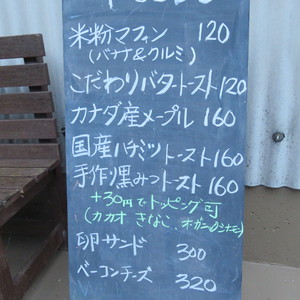 米粉マフィン 120
(バナナ&クルミ)
こだわりバタートースト120
カナダ産メープル 160
国産ハチミツトースト160
手作り黒みつトースト 160
+30円でトッピング可
(カカオ きなこ、オーガニックシナモン)
卵サンド 300
ベーコンチーズ 320